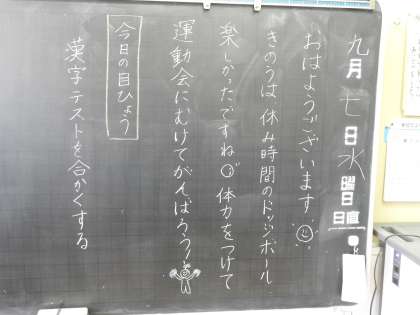 九月七日水曜日
日直
おはようございます
きのうは休み時間のドッジボール
楽しかったですね 体力をつけて
運動会にむけてがんばろう！
今日の目ひょう
漢字テストを合かくする